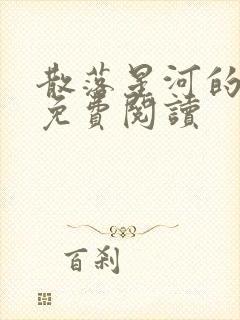 散落星河的
免費閱讀
百刹